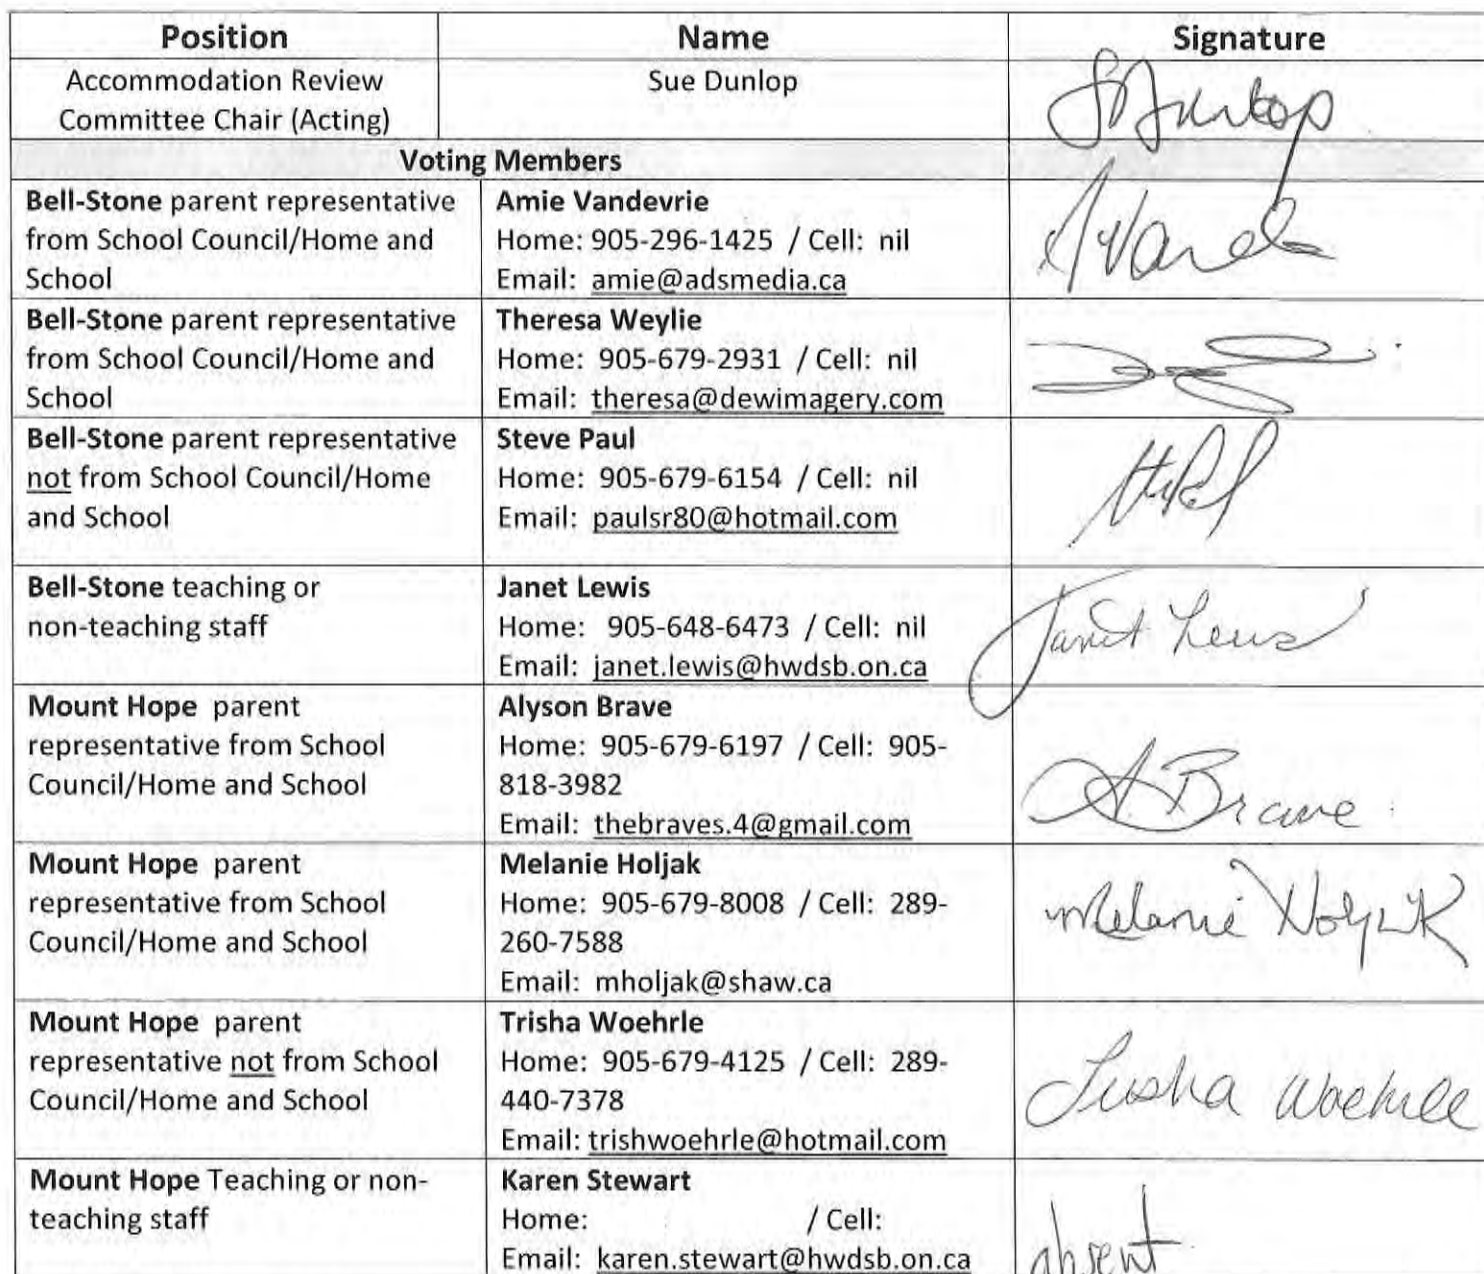 Position Name Signature
Accommodation Review
Committee Chair (Acting)
Sue Dunlop
SDunlop
Voting Members
Bell-Stone parent representative
from School Council/Home and
School
Amie Vandevrie
Home: 905-296-1425 / Cell: nil
Email: amie@adsmedia.ca
Bell-Stone parent representative
from School Council/Home and
School
Theresa Weylie
Home: 905-679-2931 / Cell: nil
Email: theresa@dewimagery.com
Bell-Stone parent representative
not from School Council/Home
and School
Steve Paul
Home: 905-679-6154 / Cell: nil
Email: paulsr80@hotmail.com
Bell-Stone teaching or
non-teaching staff
Janet Lewis
Home: 905-648-6473 / Cell: nil
Email: janet.lewis@hwdsb.on.ca
Janet Lewis
Mount Hope parent
representative from School
Council/Home and School
Alyson Brave
Home: 905-679-6197 / Cell: 905-
818-3982
Email: thebraves.4@gmail.com
A Brave
Mount Hope parent
representative from School
Council/Home and School
Melanie Holjak
Home: 905-679-8008 / Cell: 289-
260-7588
Email: mholjak@shaw.ca
Melanie Holjak
Mount Hope parent
representative not from School
Council/Home and School
Trisha Woehrle
Home: 905-679-4125 / Cell: 289-
440-7378
Email: trishwoehrle@hotmail.com
Trisha Woehrle
Mount Hope Teaching or non-
teaching staff
Karen Stewart
Home: / Cell:
Email: karen.stewart@hwdsb.on.ca
absent